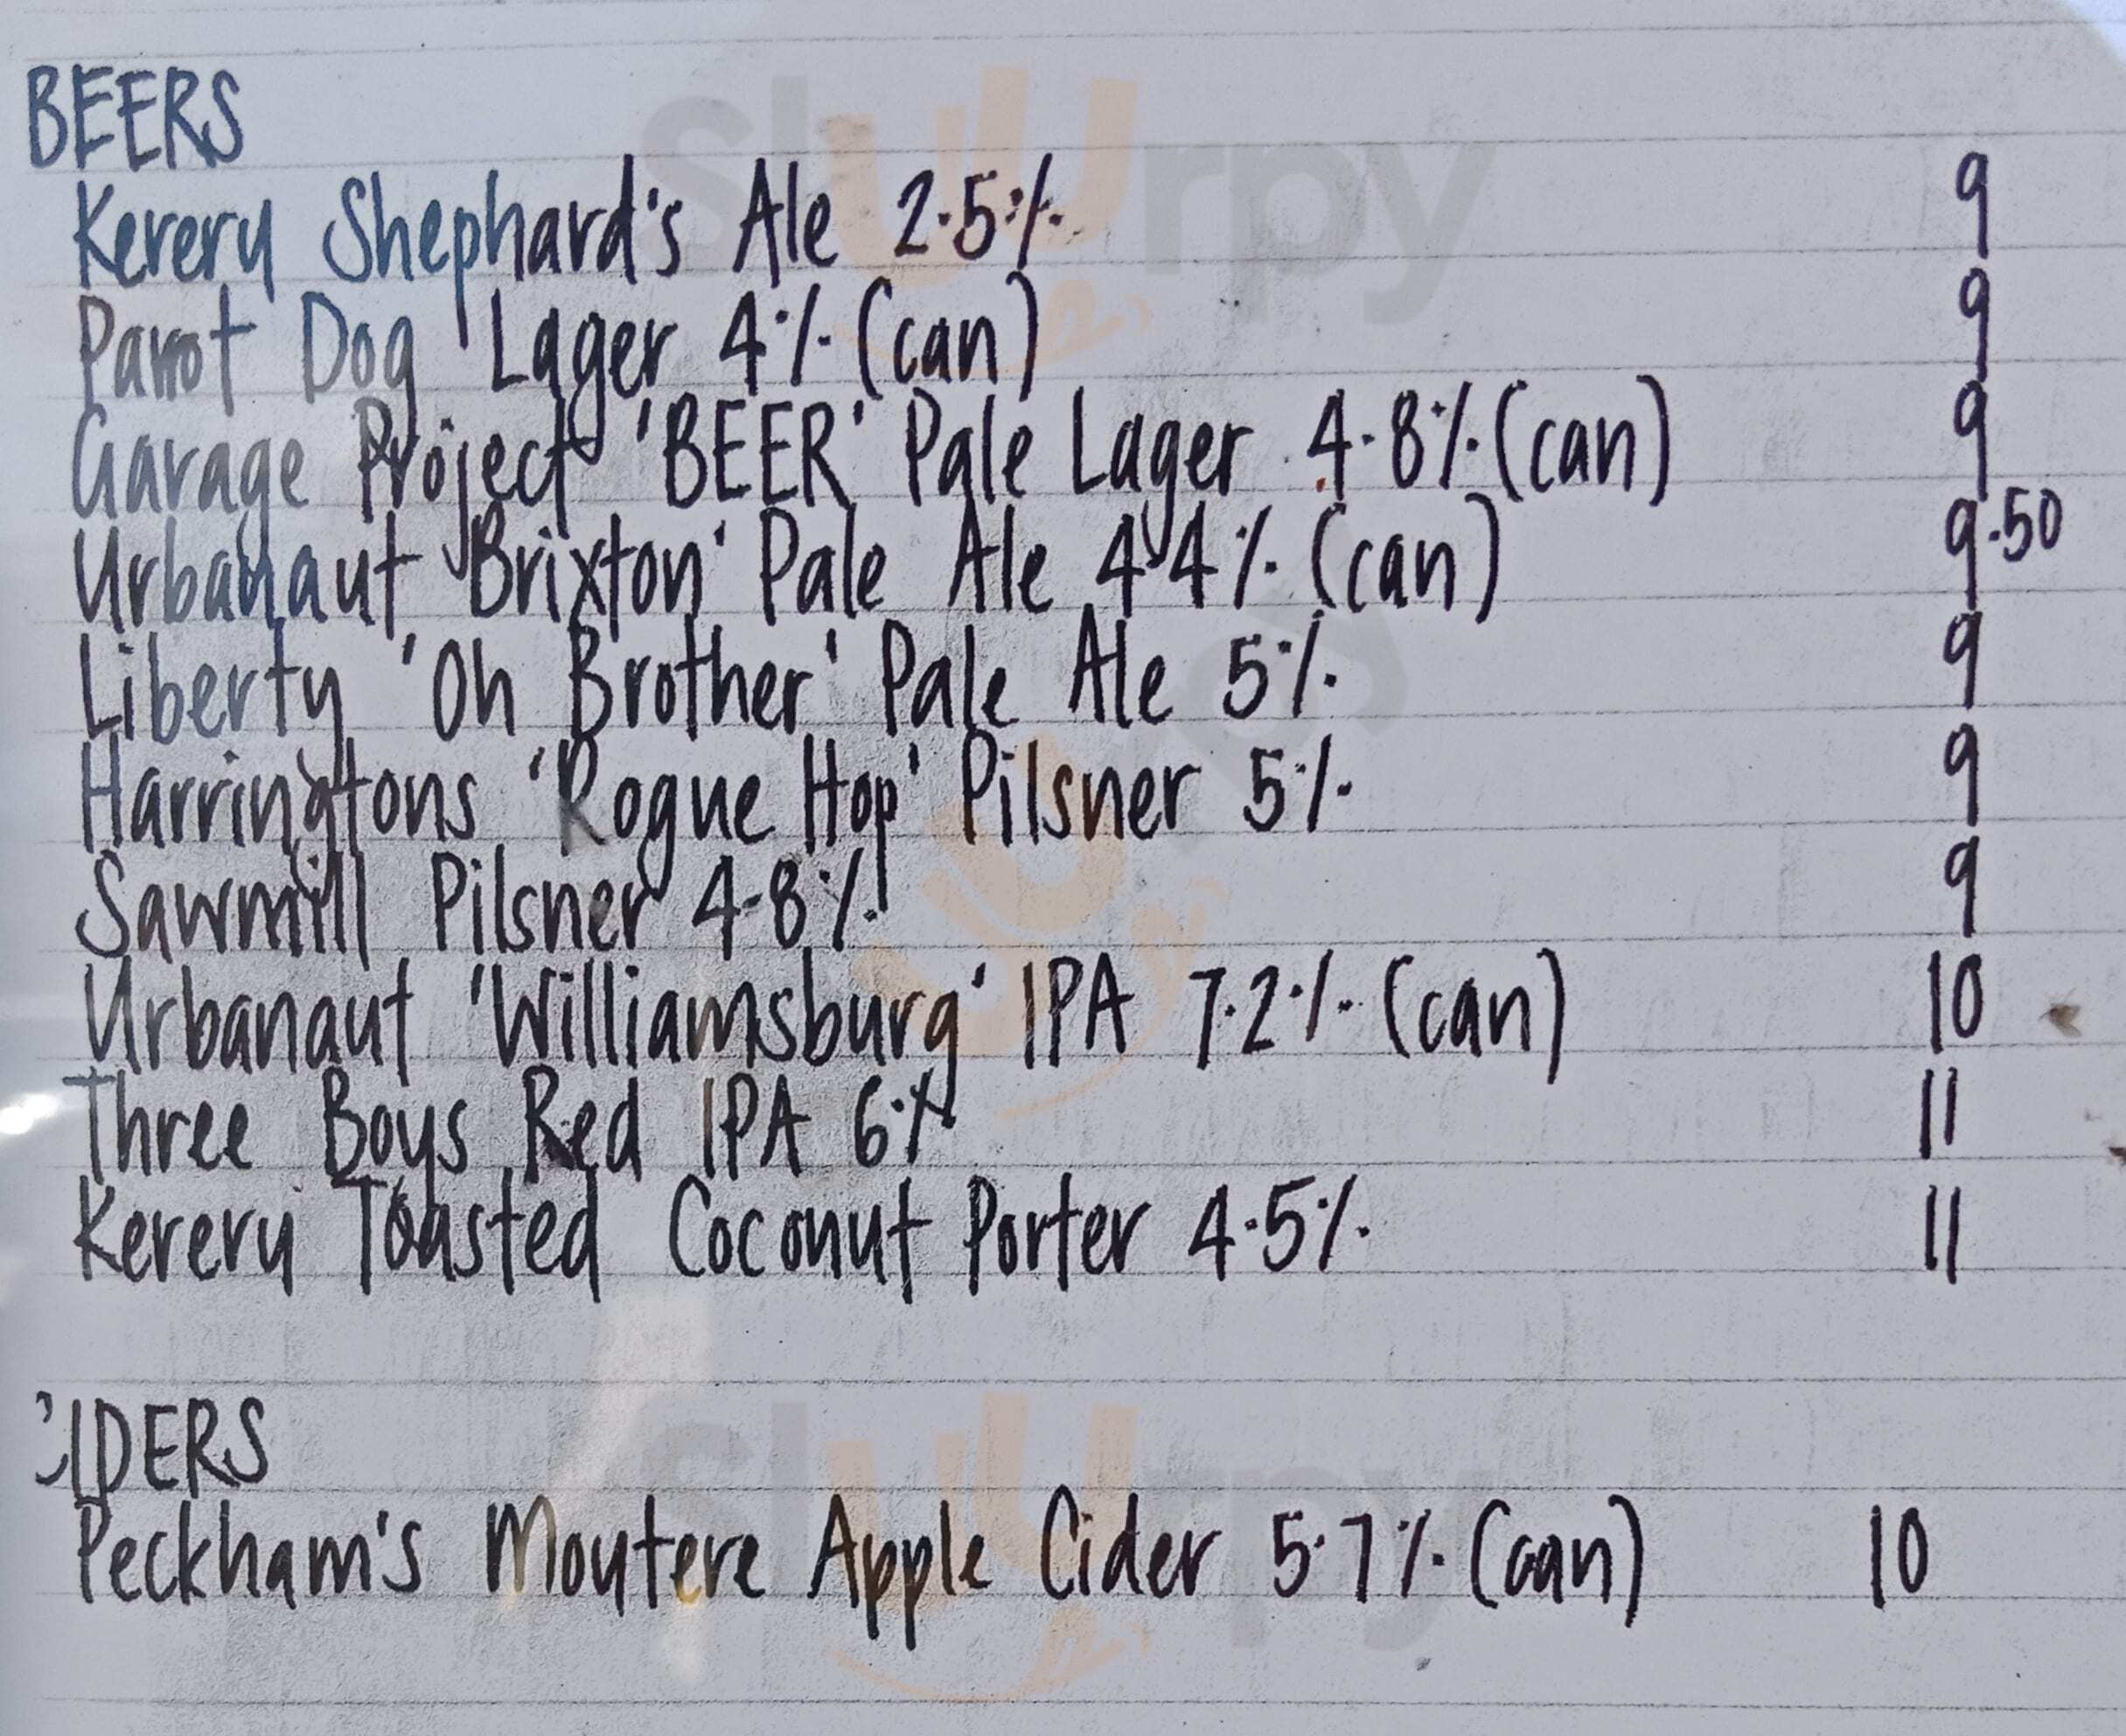 BEERS
Kerery Shephard's Ale 2.5% 9
Parrot Dog Lager 4% (can) 9
Garage Project 'BEER' Pale Lager 4.8% (can) 9
Urbanaut 'Brixton' Pale Ale 4.4% (can) 9.50
Liberty 'Oh Brother' Pale Ale 5% 9
Harringtons 'Rogue Hop' Pilsner 5% 9
Sawmill Pilsner 4.8% 9
Urbanaut 'Williamsburg' IPA 7.2% (can) 10
Three Boys Red IPA 6% 11
Kereru Toasted Coconut Porter 4.5% 11
CIDERS
Peckham's Moutere Apple Cider 5.7% (can) 10
Sluurpy
Sluurpy